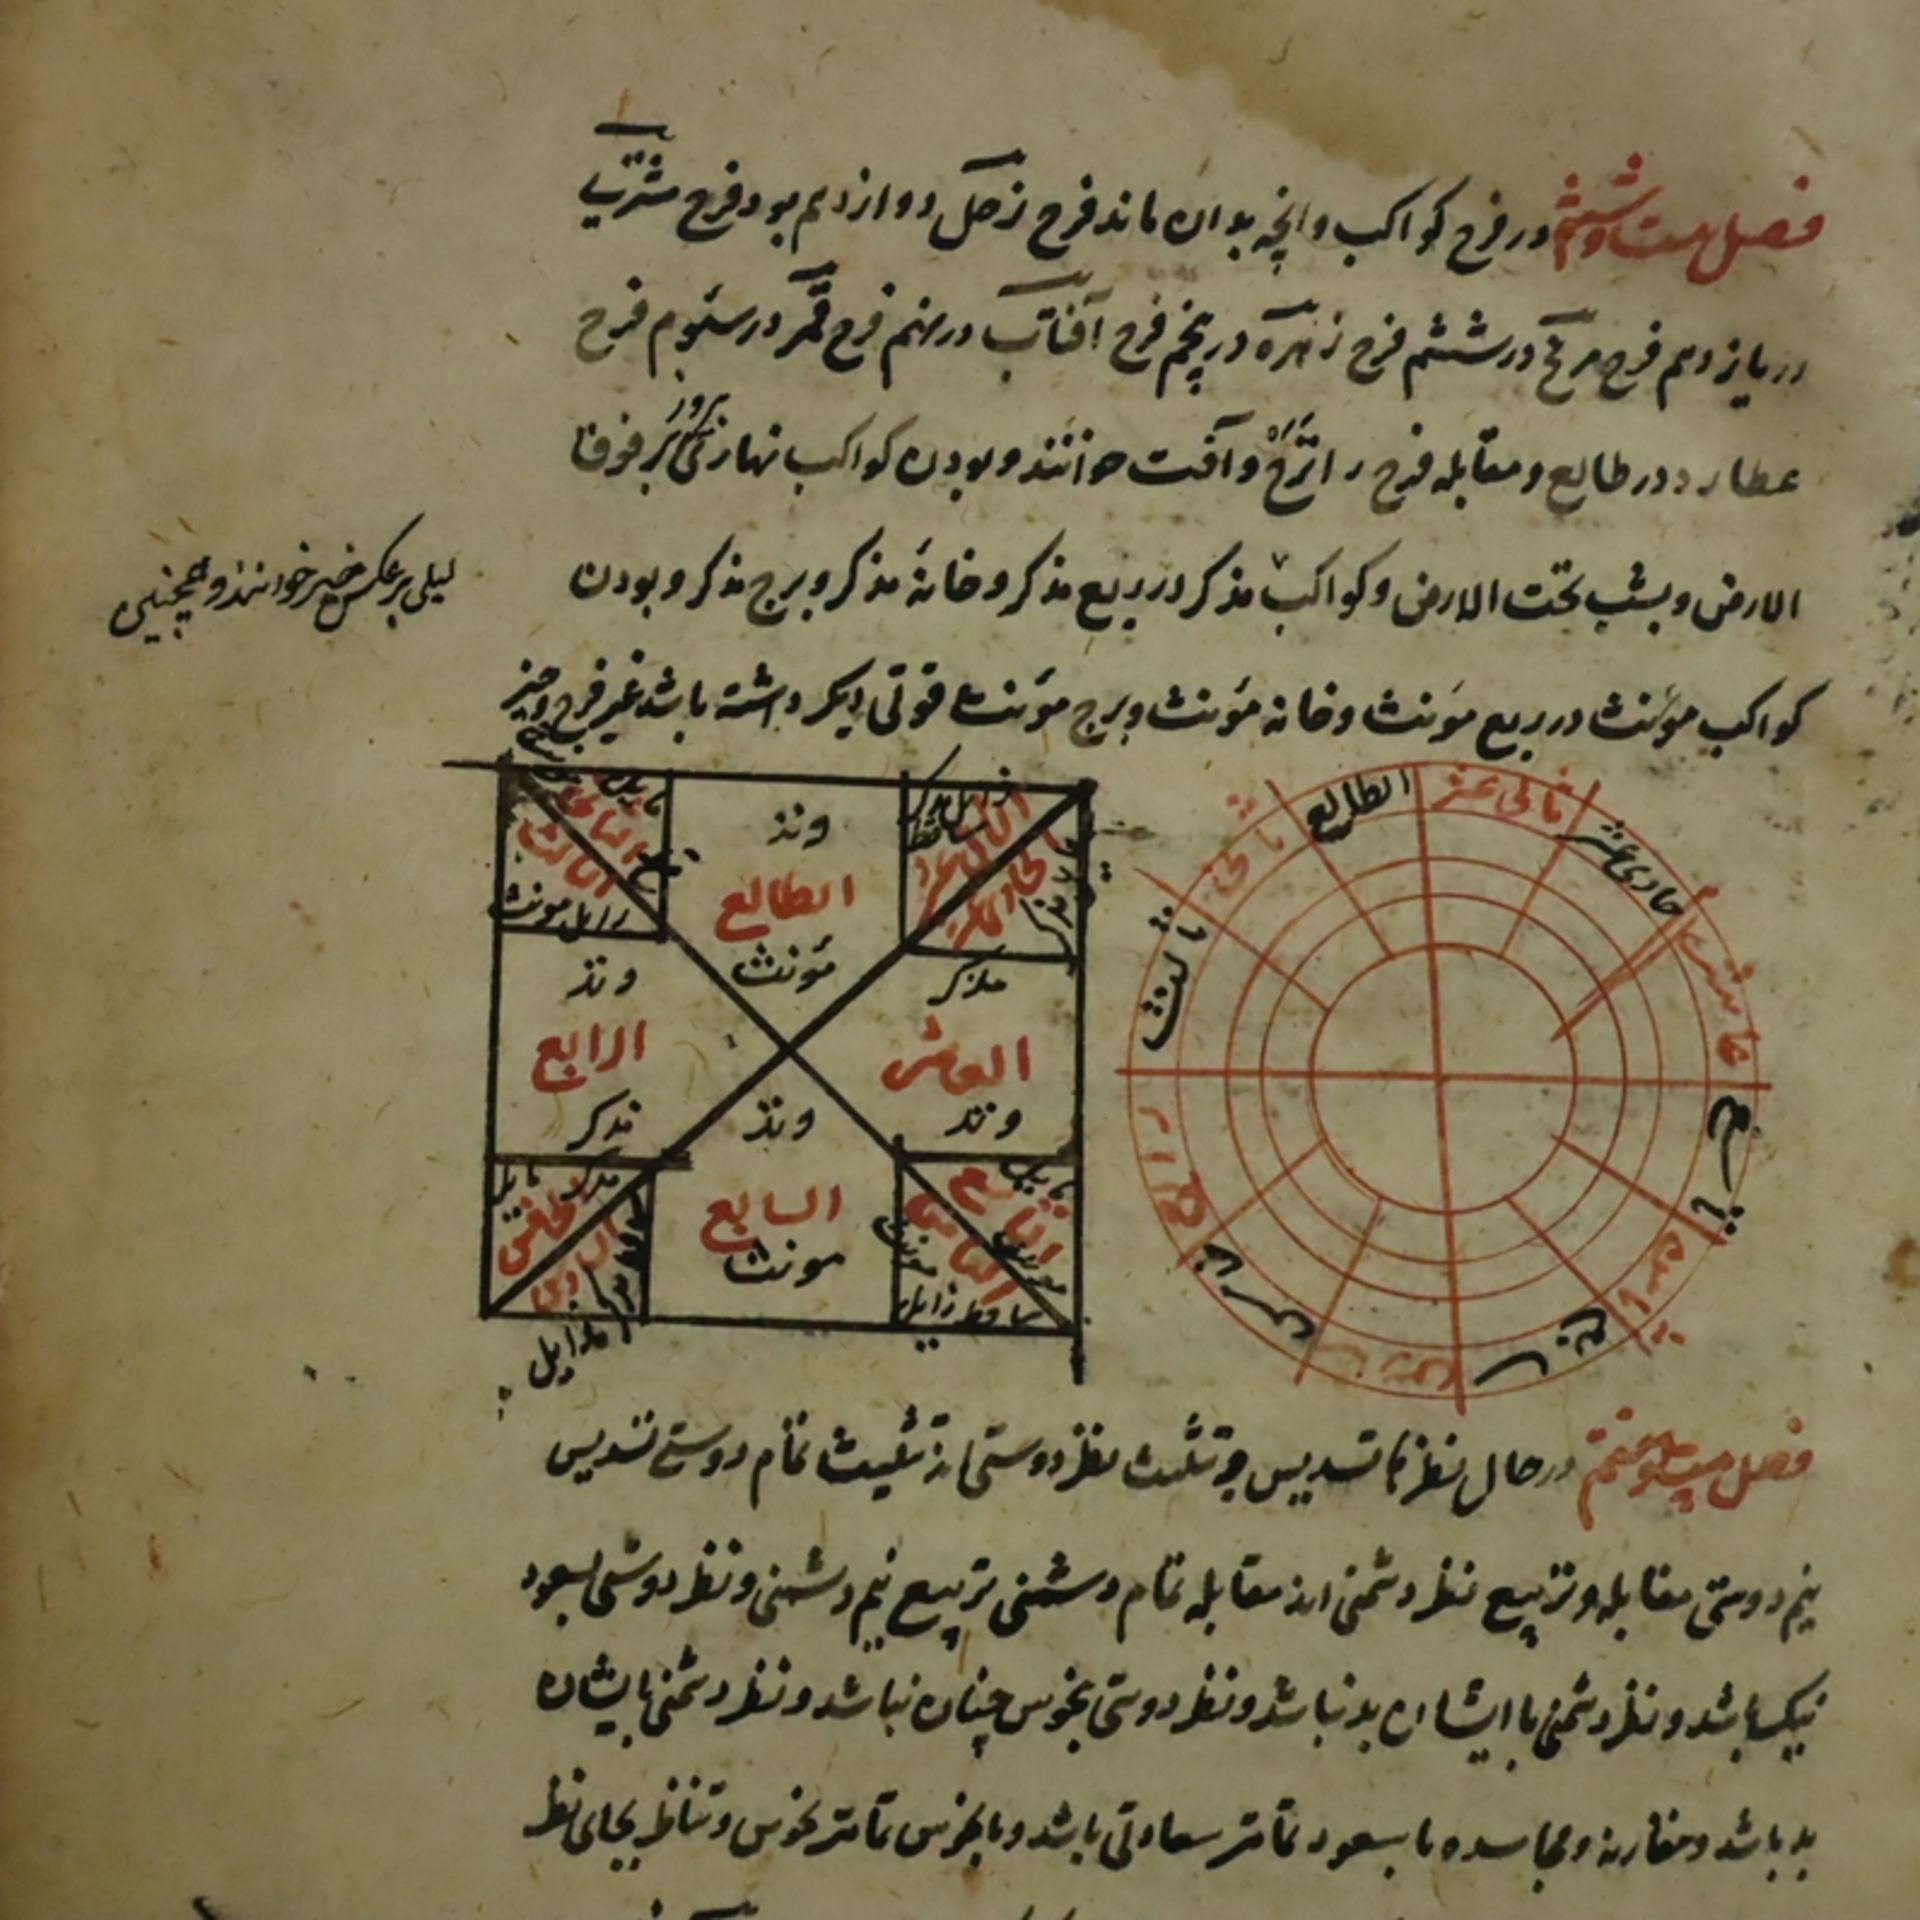 فصل بیست و ششم در فرح کواکب و انچه بدان ماند فرح زحل دوازدهم بود فرح مشتری
در یازدهم فرح مریخ در ششم فرح زهره در پنجم فرح آفتاب در نهم فرح قمر در سئوم فرح
عطارد در طالع و مقابله فرح را ترح و آفت خوانند و بودن کواکب نهاری بروز فوق
الارض و بشب تحت الارض و کواکب مذکر در ربع مذکر و خانهٔ مذکر و برج مذکر و بودن
لیلی بر عکس خیر خوانند و همچنین
کواکب مؤنث در ربع مؤنث و خانه مؤنث و برج مؤنث قوتی دیگر داشته باشد غیر فرح و حیز
وتد
الطالع
مؤنث
مذکر
العاشر
وتد
وتد
الرابع
مذکر
وتد
السابع
مونث
زایل مونث
الثانی
الثالث
الخامس
الثامن
ساقط زایل
الطالع
ثانی عشر
حادی عشر
عاشر
تاسع
ثامن
سابع
سادس
خامس
رابع
ثالث
ثانی
فصل بیست و هفتم در حال نظرها تسدیس و تثلیث نظر دوستی اند تثلیث تمام دوستی تسدیس
نیم دوستی مقابله و تربیع نظر دشمنی اند مقابله تمام دشمنی تربیع نیم دشمنی و نظر دوستی بسعود
نیک باشد و نظر دشمنی با ایشان بد نباشد و نظر دوستی بنحوس چنان نباشد و نظر دشمنی بایشان
بد باشد و مقارنه و مجاسده با سعود تمامتر سعادتی باشد و با نحوس تمامتر نحوس و تناظر بجای نظر